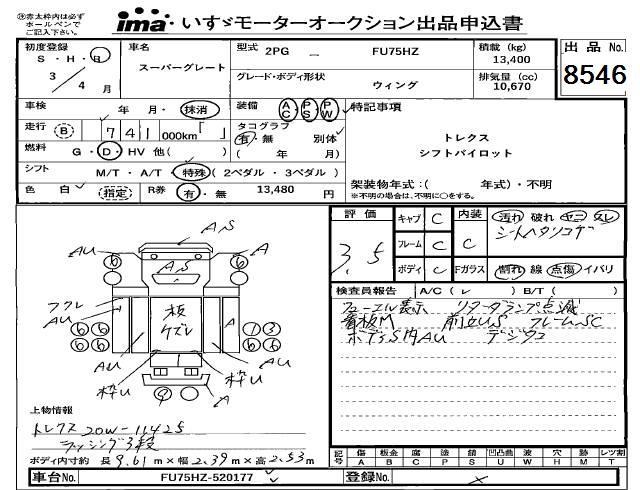 ㊟赤太枠内は必ず
ボールペンで
ご記入下さい。
ima いすゞモーターオークション出品申込書
初度登録
S・H・R
3/4月
車名
スーパーグレート
型式 2PG － FU75HZ
グレード・ボディ形状
ウィング
積載 (kg)
13,400
排気量 (cc)
10,670
出品 No.
8546
車検 年 月・抹消
走行 B 741,000km「 」
燃料 G・D・HV 他( )
シフト M/T・A/T・特殊 ( 2ペダル・3ペダル )
色 白 指定 R券 有・無 13,480 円
装備 AC・PS・PW
タコグラフ 別体
有・無
( 年 月)
特記事項
トレクス
シフトパイロット
架装物年式：( 年式)・不明
※不明の場合は、不明に○をする。
評価
3.5
キャブ C
フレーム C
ボディ C
内装 C
Fガラス
汚れ 破れ ヤニ スレ
シートヘタリコゲ
割れ 線 点傷 イバリ
検査員報告 A/C ( レ ) B/T ( )
フューエル表示 リタータランプ点滅
看板M 前立US フレームSC
ボデS内AU デジタコ
A,S
AU
A
6
A,S
フクレ
AU
板
ケズレ
A
6 6
6 6
1 3
6 6
AU
AU
枠U
枠U
9
A
上物情報
トレクス 20W-11425
ラッシング3段
ボディ内寸約 長 9.61 m × 幅 2.39 m × 高 2.53 m
記号 傷 板金 腐 塗 錆 凹凸曲 波 穴 跡 レツ割
A B C P S U W H M T
車台No. FU75HZ-520177
登録No.